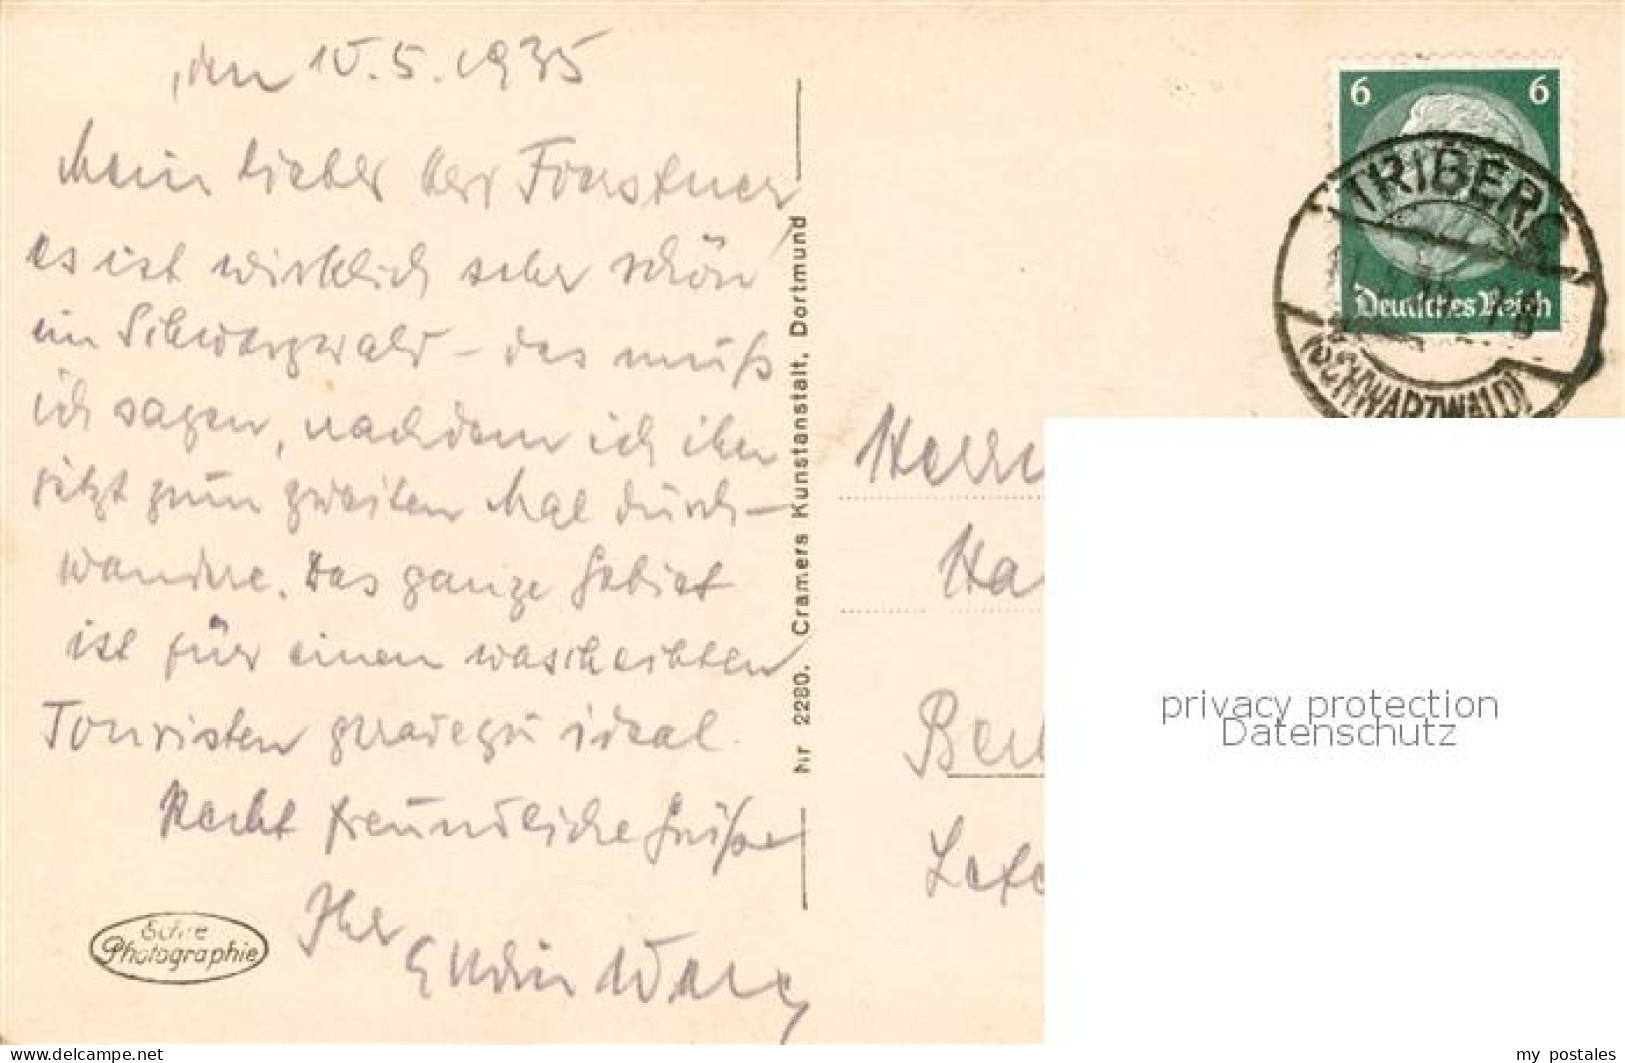 , den 10.5.1935
Mein lieber Herr Forstner
es ist wirklich sehr schön
im Schwarzwald - das muß
ich sagen, nachdem ich ihn
jetzt zum zweiten Mal durch-
wandere. Das ganze Gebiet
ist für einen waschechten
Touristen geradezu ideal.
Recht freundliche Grüße
Ihr
Echte
Photographie
Nr 2280. Cramers Kunstanstalt, Dortmund
6 6
Deutsches Reich
TRIBERG
(SCHWARZWALD)
Herrn
Ha
Berl
privacy protection
Datenschutz
www.delcampe.net
my_postales